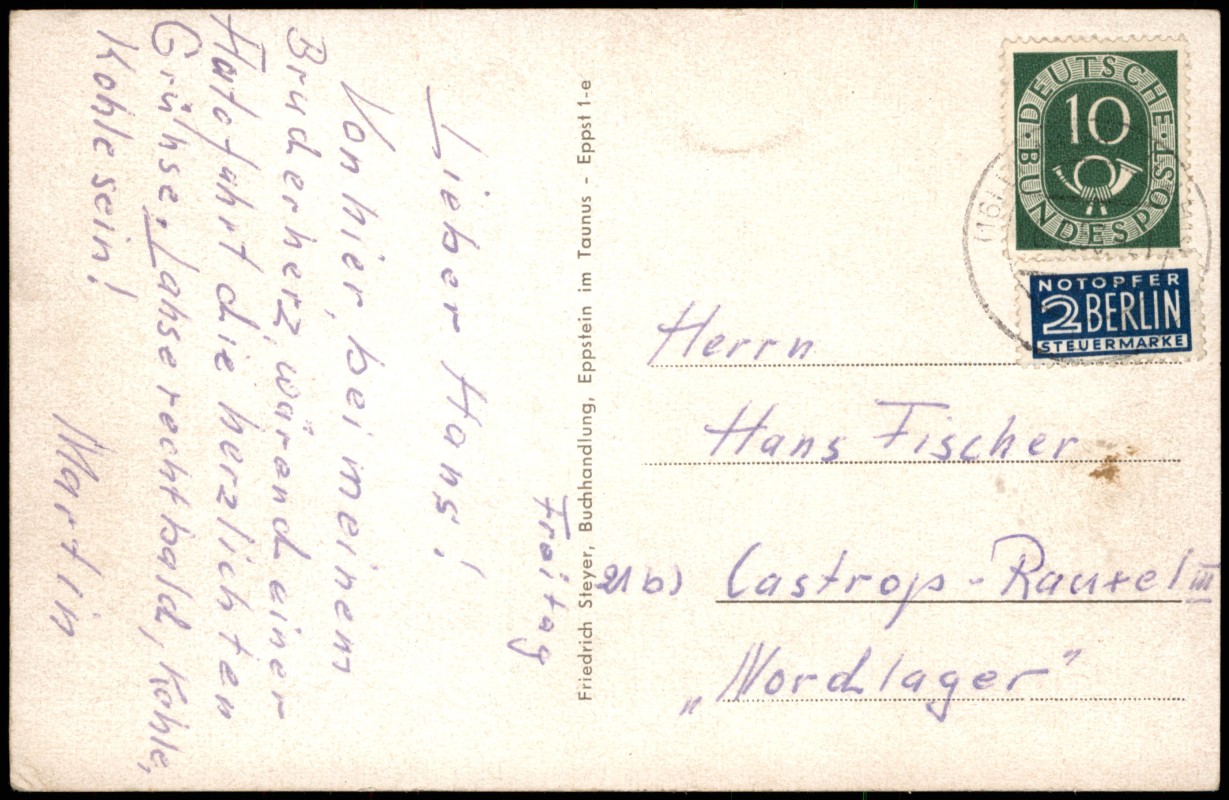 Freitag
Lieber Hans!
Von hier, bei meinem
Bruderherz, wärend einer
fahrt die herzlichsten
Grühse. Lahse recht bald, Kohle,
Kohle sein!
Martin
Friedrich Steyer, Buchhandlung, Eppstein im Taunus - Eppst 1-e
DEUTSCHE BUNDESPOST
10
NOTOPFER
2 BERLIN
STEUERMARKE
(16)
Herrn
Hans Fischer
21b) Castrop-Rauxel III
„Nordlager"